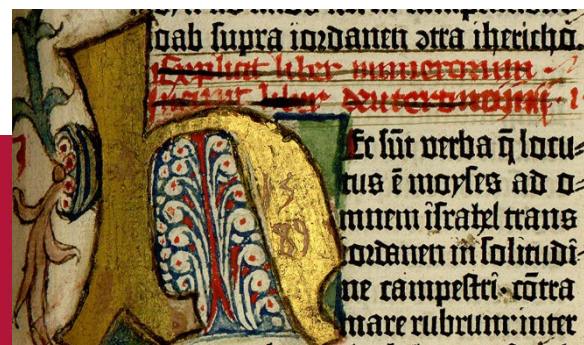 oab supra iordanen ɔtra ihericho.
Explicit liber numerorum
Incipit liber deuteronomij
H
Ec sūt verba q̄ locu=
15
tus ē moyses ad o=
89
mnem israhel trans
iordanen in solitudi=
ne campestri · cōtra
mare rubrum: inter